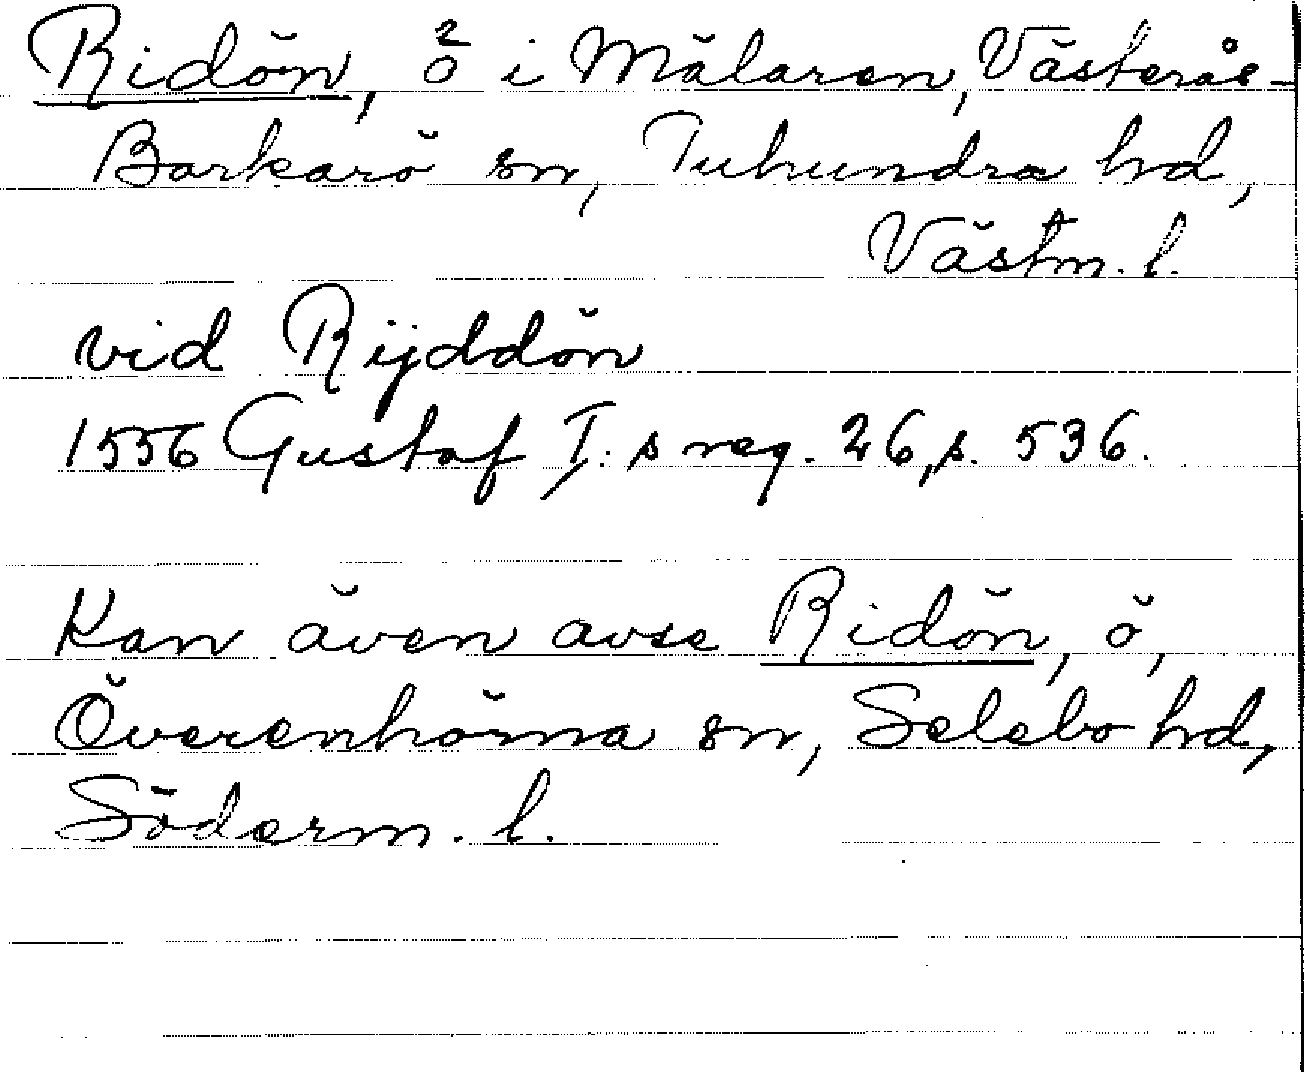 Ridön, ö i Mälaren, Västerås-
Barkarö sn, Tuhundra hd,
Västm. l.
vid Rijddön
1556 Gustaf I:s reg. 26, s. 536.
Kan även avse Ridön, ö,
Överenhörna sn, Selebo hd,
Söderm. l.